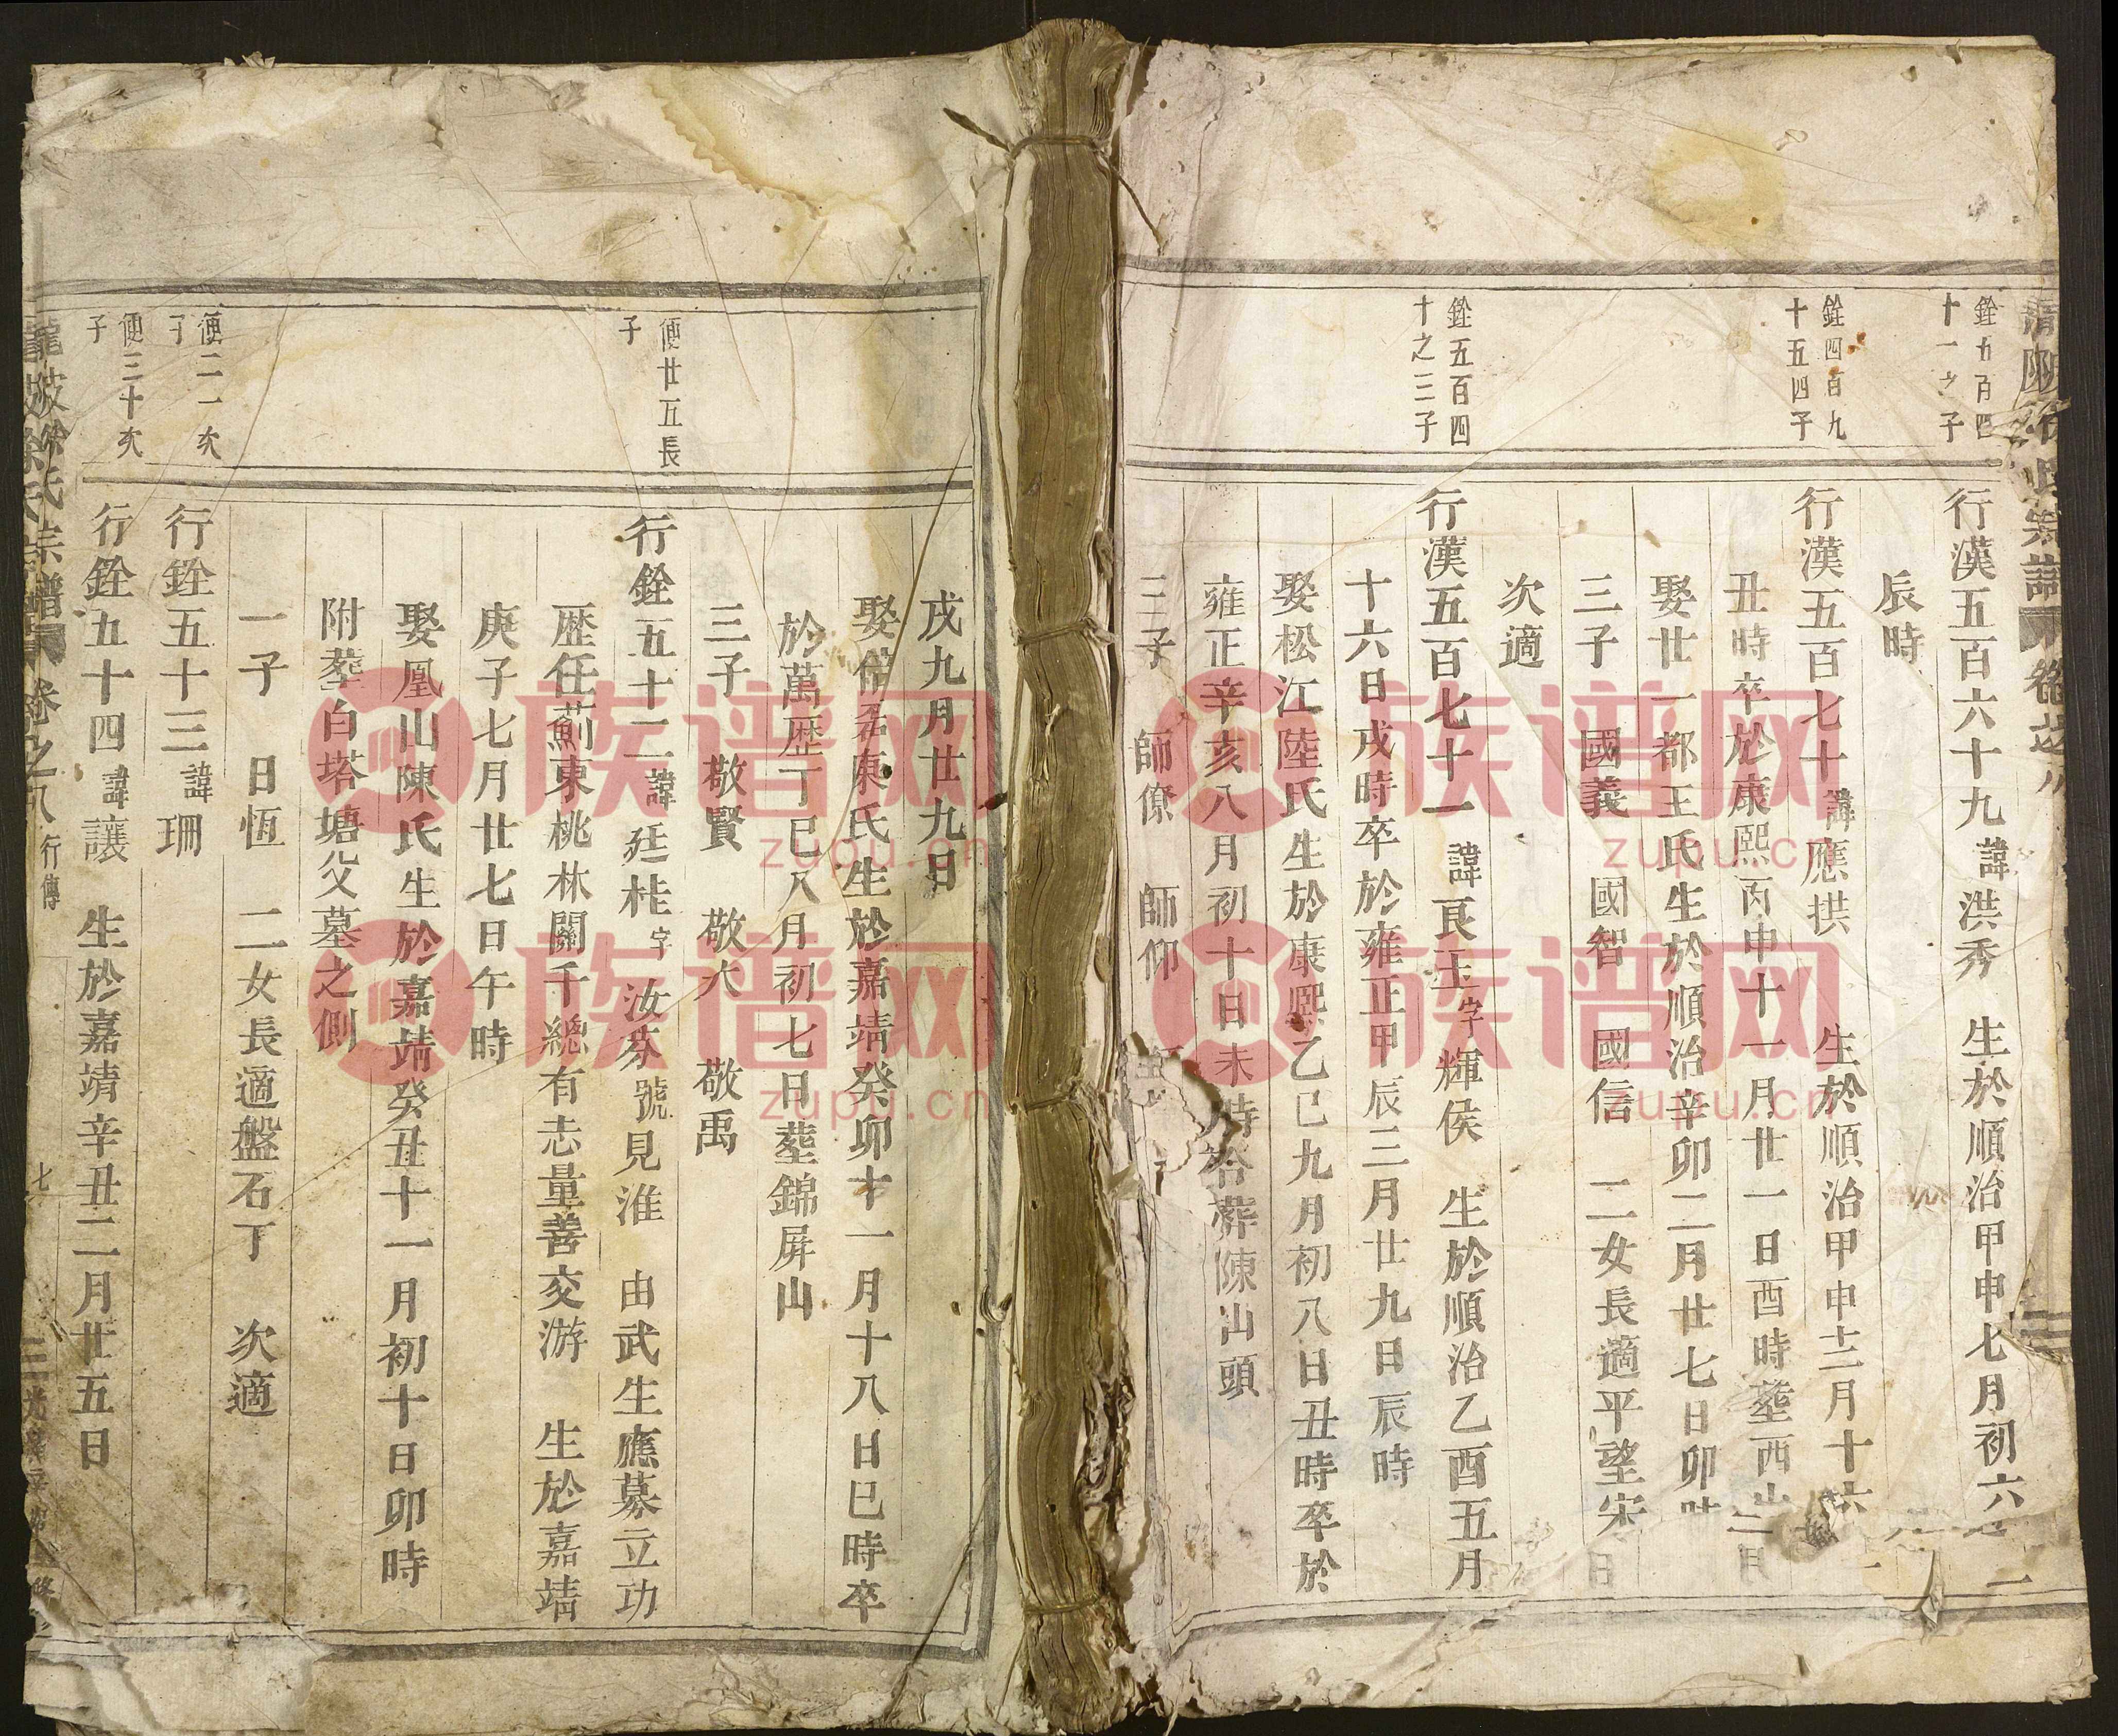 銓五百四
十一之子
行漢五百六十九諱洪秀 生於順治甲申七月初六
辰時
銓四百九
十五四子
行漢五百七十諱應拱 生於順治甲申十二月十六
丑時卒於康熙丙申十一月廿一日酉時塟西山
娶廿一都王氏生於順治辛卯二月廿七日卯時
三子 國義 國智 國信 二女長適平望宋
次適
銓五百四
十之三子
行漢五百七十一諱良玉字輝侯 生於順治乙酉五月
十六日戌時卒於雍正甲辰三月廿九日辰時
娶松江陸氏生於康熙乙巳九月初八日丑時卒於
雍正辛亥八月初十日未時合葬陳山頭
三子 師僚 師仰
戌九月廿九日
娶 東氏生於嘉靖癸卯十一月十八日巳時卒
於萬歴丁巳八月初七日塟錦屏山
三子 敬賢 敬大 敬禹
便廿五長
子
行銓五十二諱廷桂字汝芬號見淮 由武生應募立功
歴任薊東桃林關千總有志量善交游 生於嘉靖
庚子七月廿七日午時
娶凰山陳氏生於嘉靖癸丑十一月初十日卯時
附塟白塔塘父墓之側
一子 日恆 二女長適盤石丁 次適
便二一次
子
行銓五十三諱珊
便三十次
子
行銓五十四諱讓 生於嘉靖辛丑二月廿五日
龍坡徐氏宗譜 卷之八 行傳 七